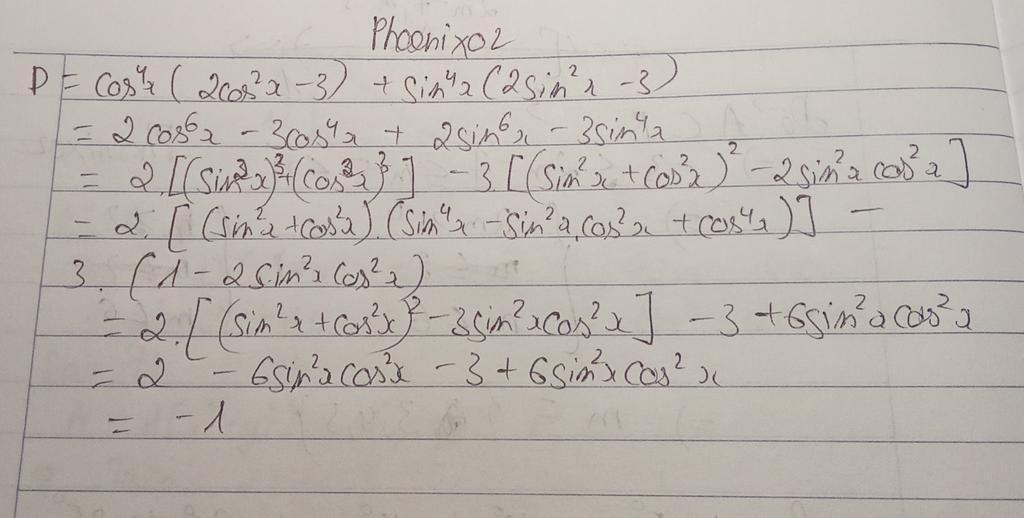 Phoenix02
D = cos⁴x ( 2cos²x - 3) + sin⁴x (2sin²x - 3)
= 2cos⁶x - 3cos⁴x + 2sin⁶x - 3sin⁴x
= 2.[(sin²x)³+(cos²x)³] - 3.[(sin²x + cos²x)² - 2sin²x cos²x]
= 2. [(sin²x + cos²x).(sin⁴x - sin²x.cos²x + cos⁴x)] -
3. (1 - 2sin²x cos²x)
= 2.[(sin²x + cos²x)² - 3sin²xcos²x] - 3 + 6sin²xcos²x
= 2 - 6sin²xcos²x - 3 + 6sin²xcos²x
= -1